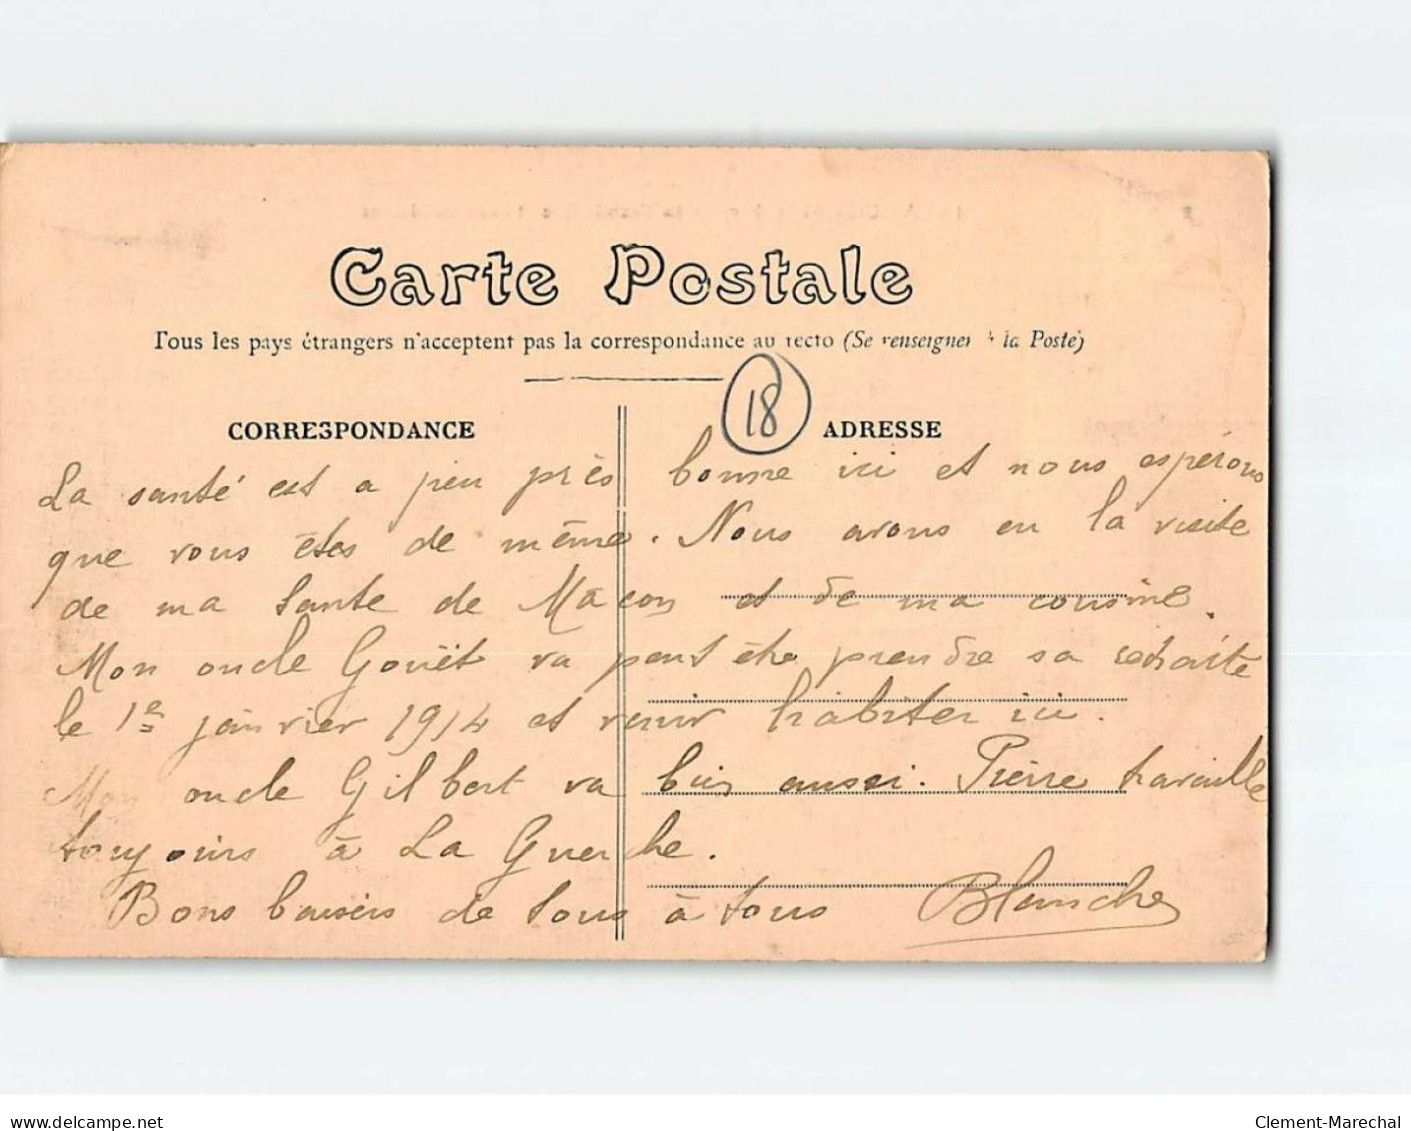 Carte Postale
Tous les pays étrangers n'acceptent pas la correspondance au recto (Se renseigner à la Poste)
18
CORRESPONDANCE
ADRESSE
La santé est a peu près bonne ici et nous espérons
que vous êtes de même. Nous avons eu la visite
de ma tante de Mâcon et de ma cousine.
Mon oncle Gouët va peut être prendre sa retraite
le 1er janvier 1914 et venir habiter ici.
Mon oncle Gilbert va bien aussi. Pierre travaille
toujours à La Guerche.
Bons baisers de tous à tous Blanche
www.delcampe.net
Clement-Marechal